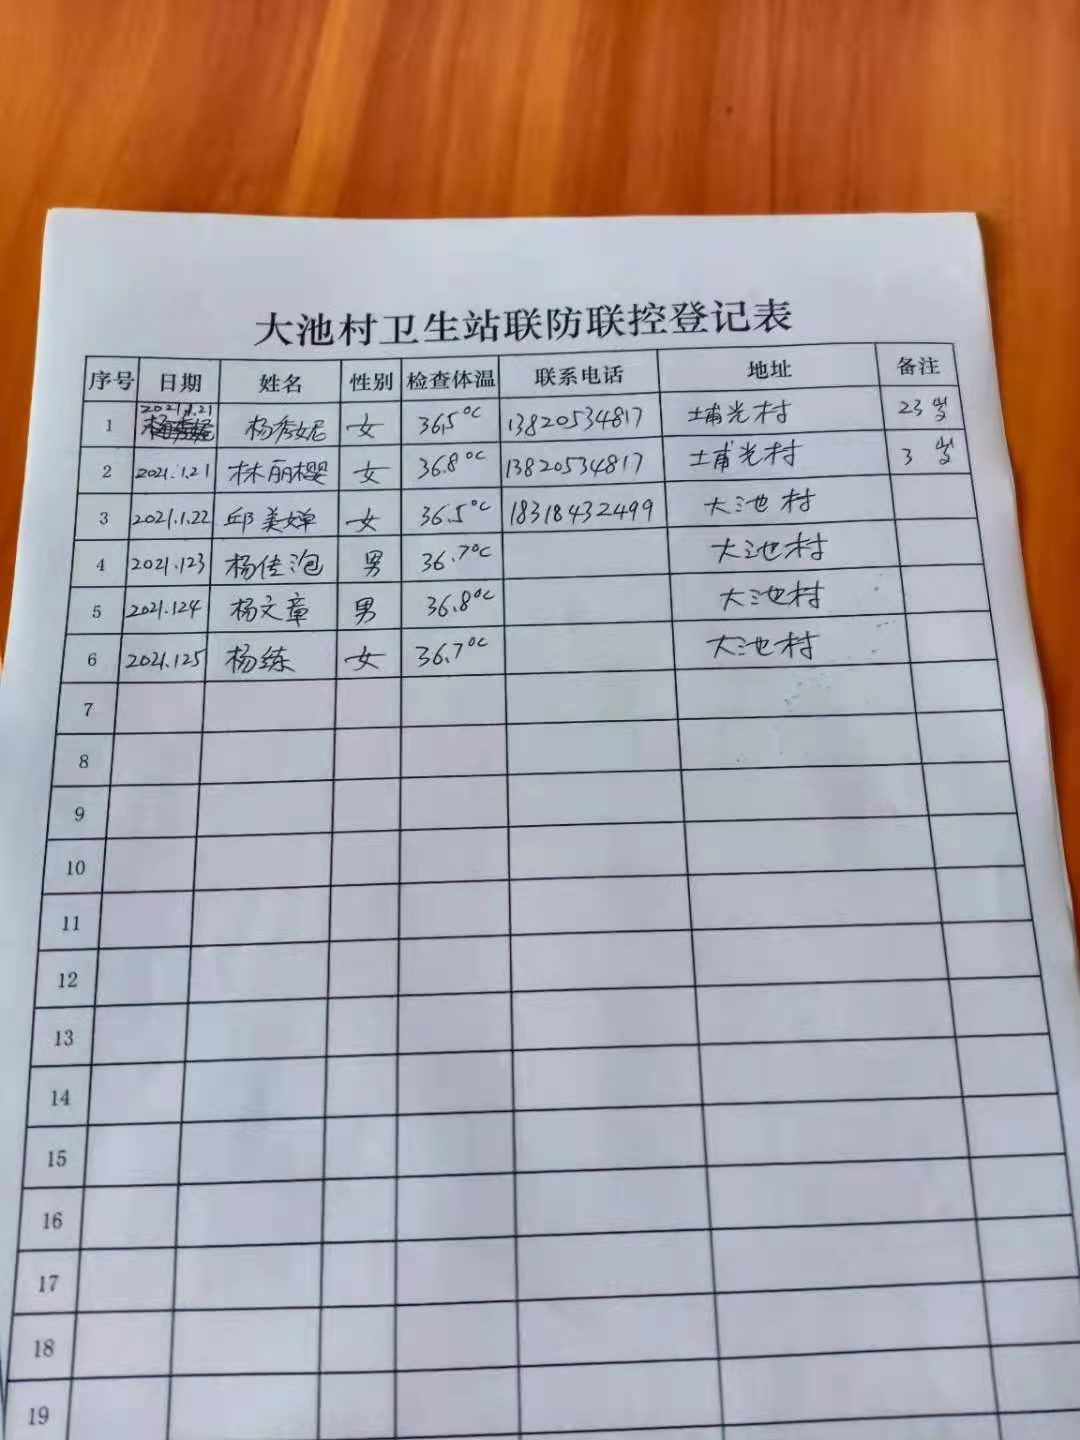 大池村卫生站联防联控登记表
序号 日期 姓名 性别 检查体温 联系电话 地址 备注
1 2021.1.21 杨秀妮 女 36.5℃ 13820534817 埔光村 23岁
2 2021.1.21 林丽樱 女 36.8℃ 13820534817 埔光村 3岁
3 2021.1.22 邱美婵 女 36.5℃ 18318432499 大池村
4 2021.1.23 杨佳泡 男 36.7℃ 大池村
5 2021.1.24 杨文章 男 36.8℃ 大池村
6 2021.1.25 杨练 女 36.7℃ 大池村
7
8
9
10
11
12
13
14
15
16
17
18
19